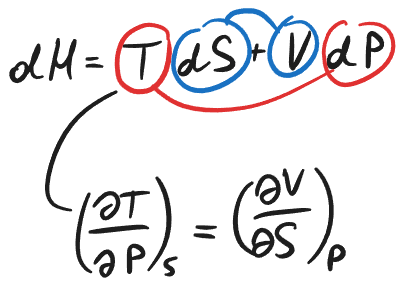 dH = T dS + V dP
(∂T/∂P)_S = (∂V/∂S)_P